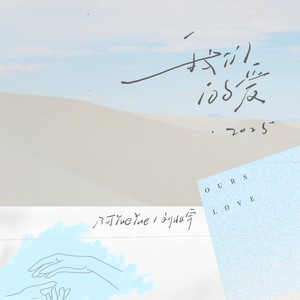 我们
的爱
·2025
OURS
LOVE
阿YueYue / 刘屿宁